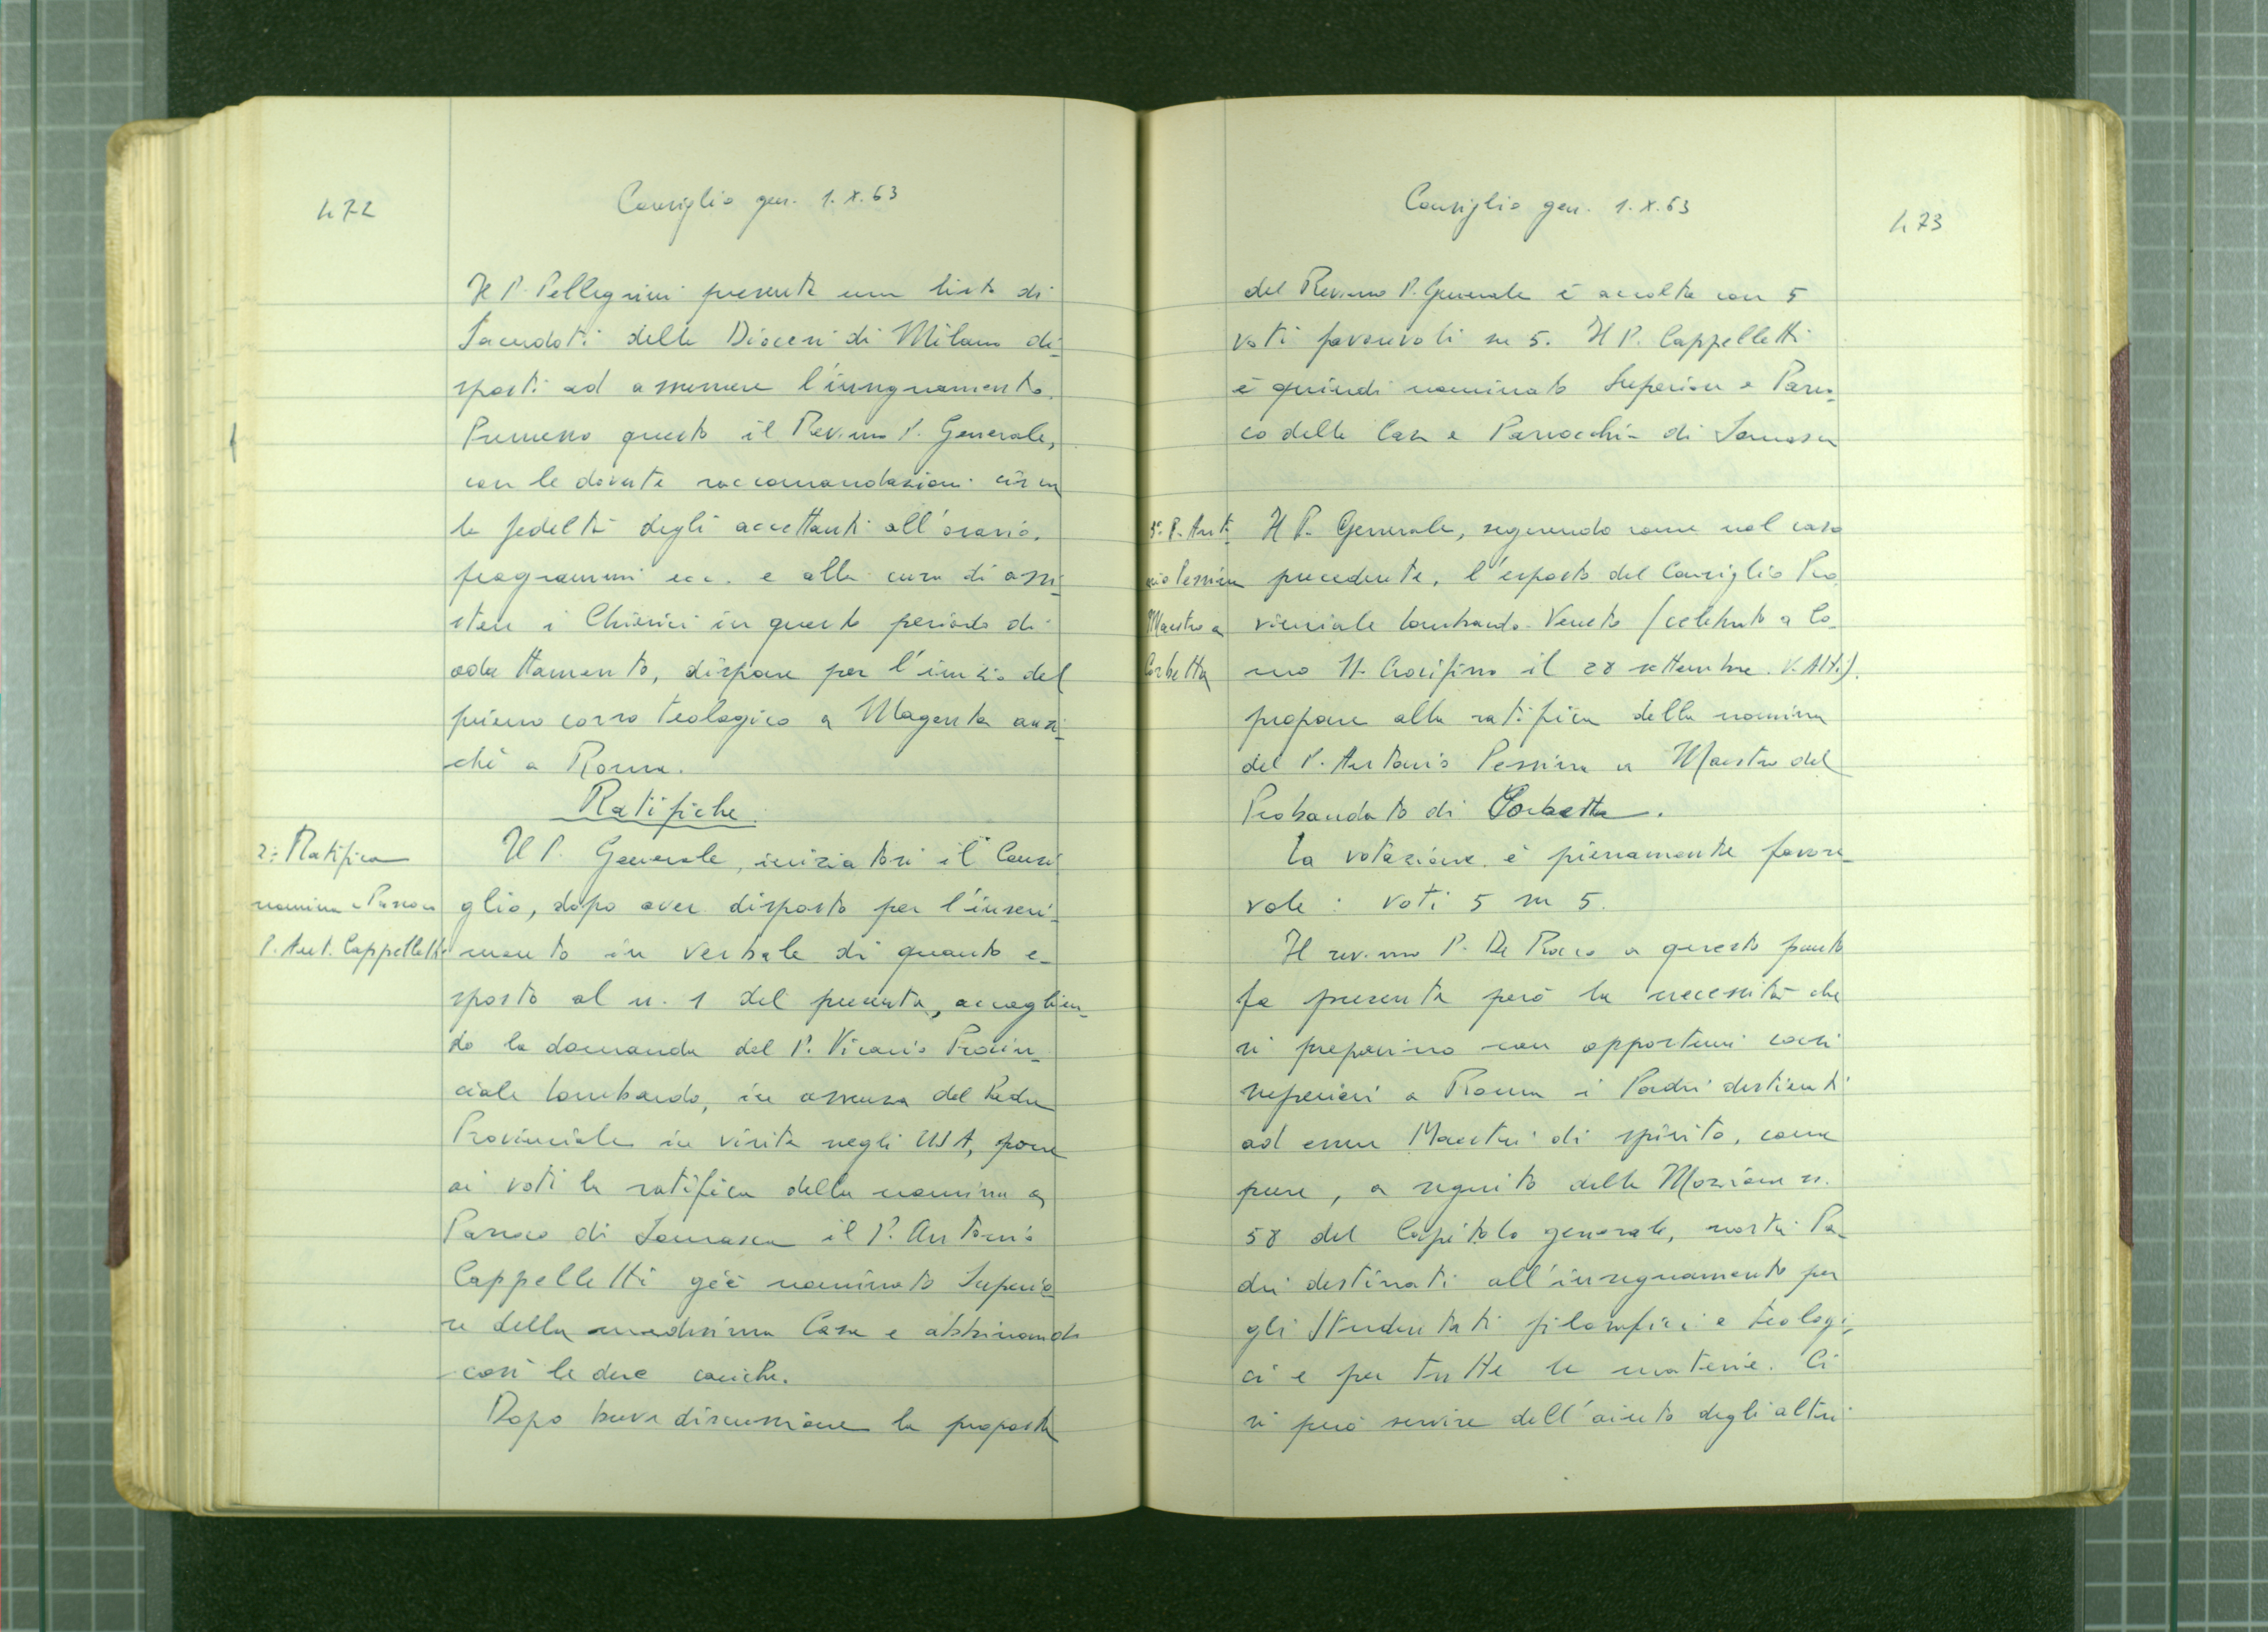 472
Consiglio gen. 1.X.63
Il P. Pellegrini presenta una lista di
Sacerdoti della Diocesi di Milano di-
sposti ad assumere l'insegnamento.
Premesso questo il Rev.mo P. Generale,
con le dovute raccomandazioni circa
la fedeltà degli accettanti all'orario,
programmi ecc. e alla cura di assi-
stere i Chierici in questo periodo di
adattamento, dispone per l'inizio del
primo corso teologico a Magenta anzi-
ché a Roma.
Ratifiche.
2: Ratifica
nomina a Parroco
P. Ant. Cappelletti
Il P. Generale, iniziatosi il Consi-
glio, dopo aver disposto per l'inseri-
mento in verbale di quanto e-
sposto al n. 1 del presente, accoglien-
do la domanda del P. Vicario Provin-
ciale lombardo, in assenza del Padre
Provinciale in visita negli USA, pone
ai voti la ratifica della nomina a
Parroco di Somasca il P. Antonio
Cappelletti già nominato Superio-
re della medesima Casa e abbinando
così le due cariche.
Dopo breve discussione la proposta
Consiglio gen. 1.X.63
473
del Rev.mo P. Generale è accolta con 5
voti favorevoli su 5. Il P. Cappelletti
è quindi nominato Superiore e Parro-
co della Casa e Parrocchia di Somasca
3: P. Anto-
nio Pessina
Maestro a
Corbetta
Il P. Generale, seguendo come nel caso
precedente, l'esposto del Consiglio Pro-
vinciale lombardo-Veneto (celebrato a Co-
mo SS. Crocifisso il 28 settembre. V. Atti).
propone alla ratifica della nomina
del P. Antonio Pessina a Maestro del
Probandato di Corbetta.
La votazione è pienamente favore-
vole: voti 5 su 5.
Il rev.mo P. De Rocco a questo punto
fa presente però la necessità che
si preparino con opportuni corsi
superiori a Roma i Padri destinati
ad esser Maestri di spirito, come
pure, a seguito della Mozione n.
58 del Capitolo generale, nostri Pa-
dri destinati all'insegnamento per
gli Studentati filosofici e teologi-
ci e per tutte le materie. Ci
si può servire dell'aiuto degli altri